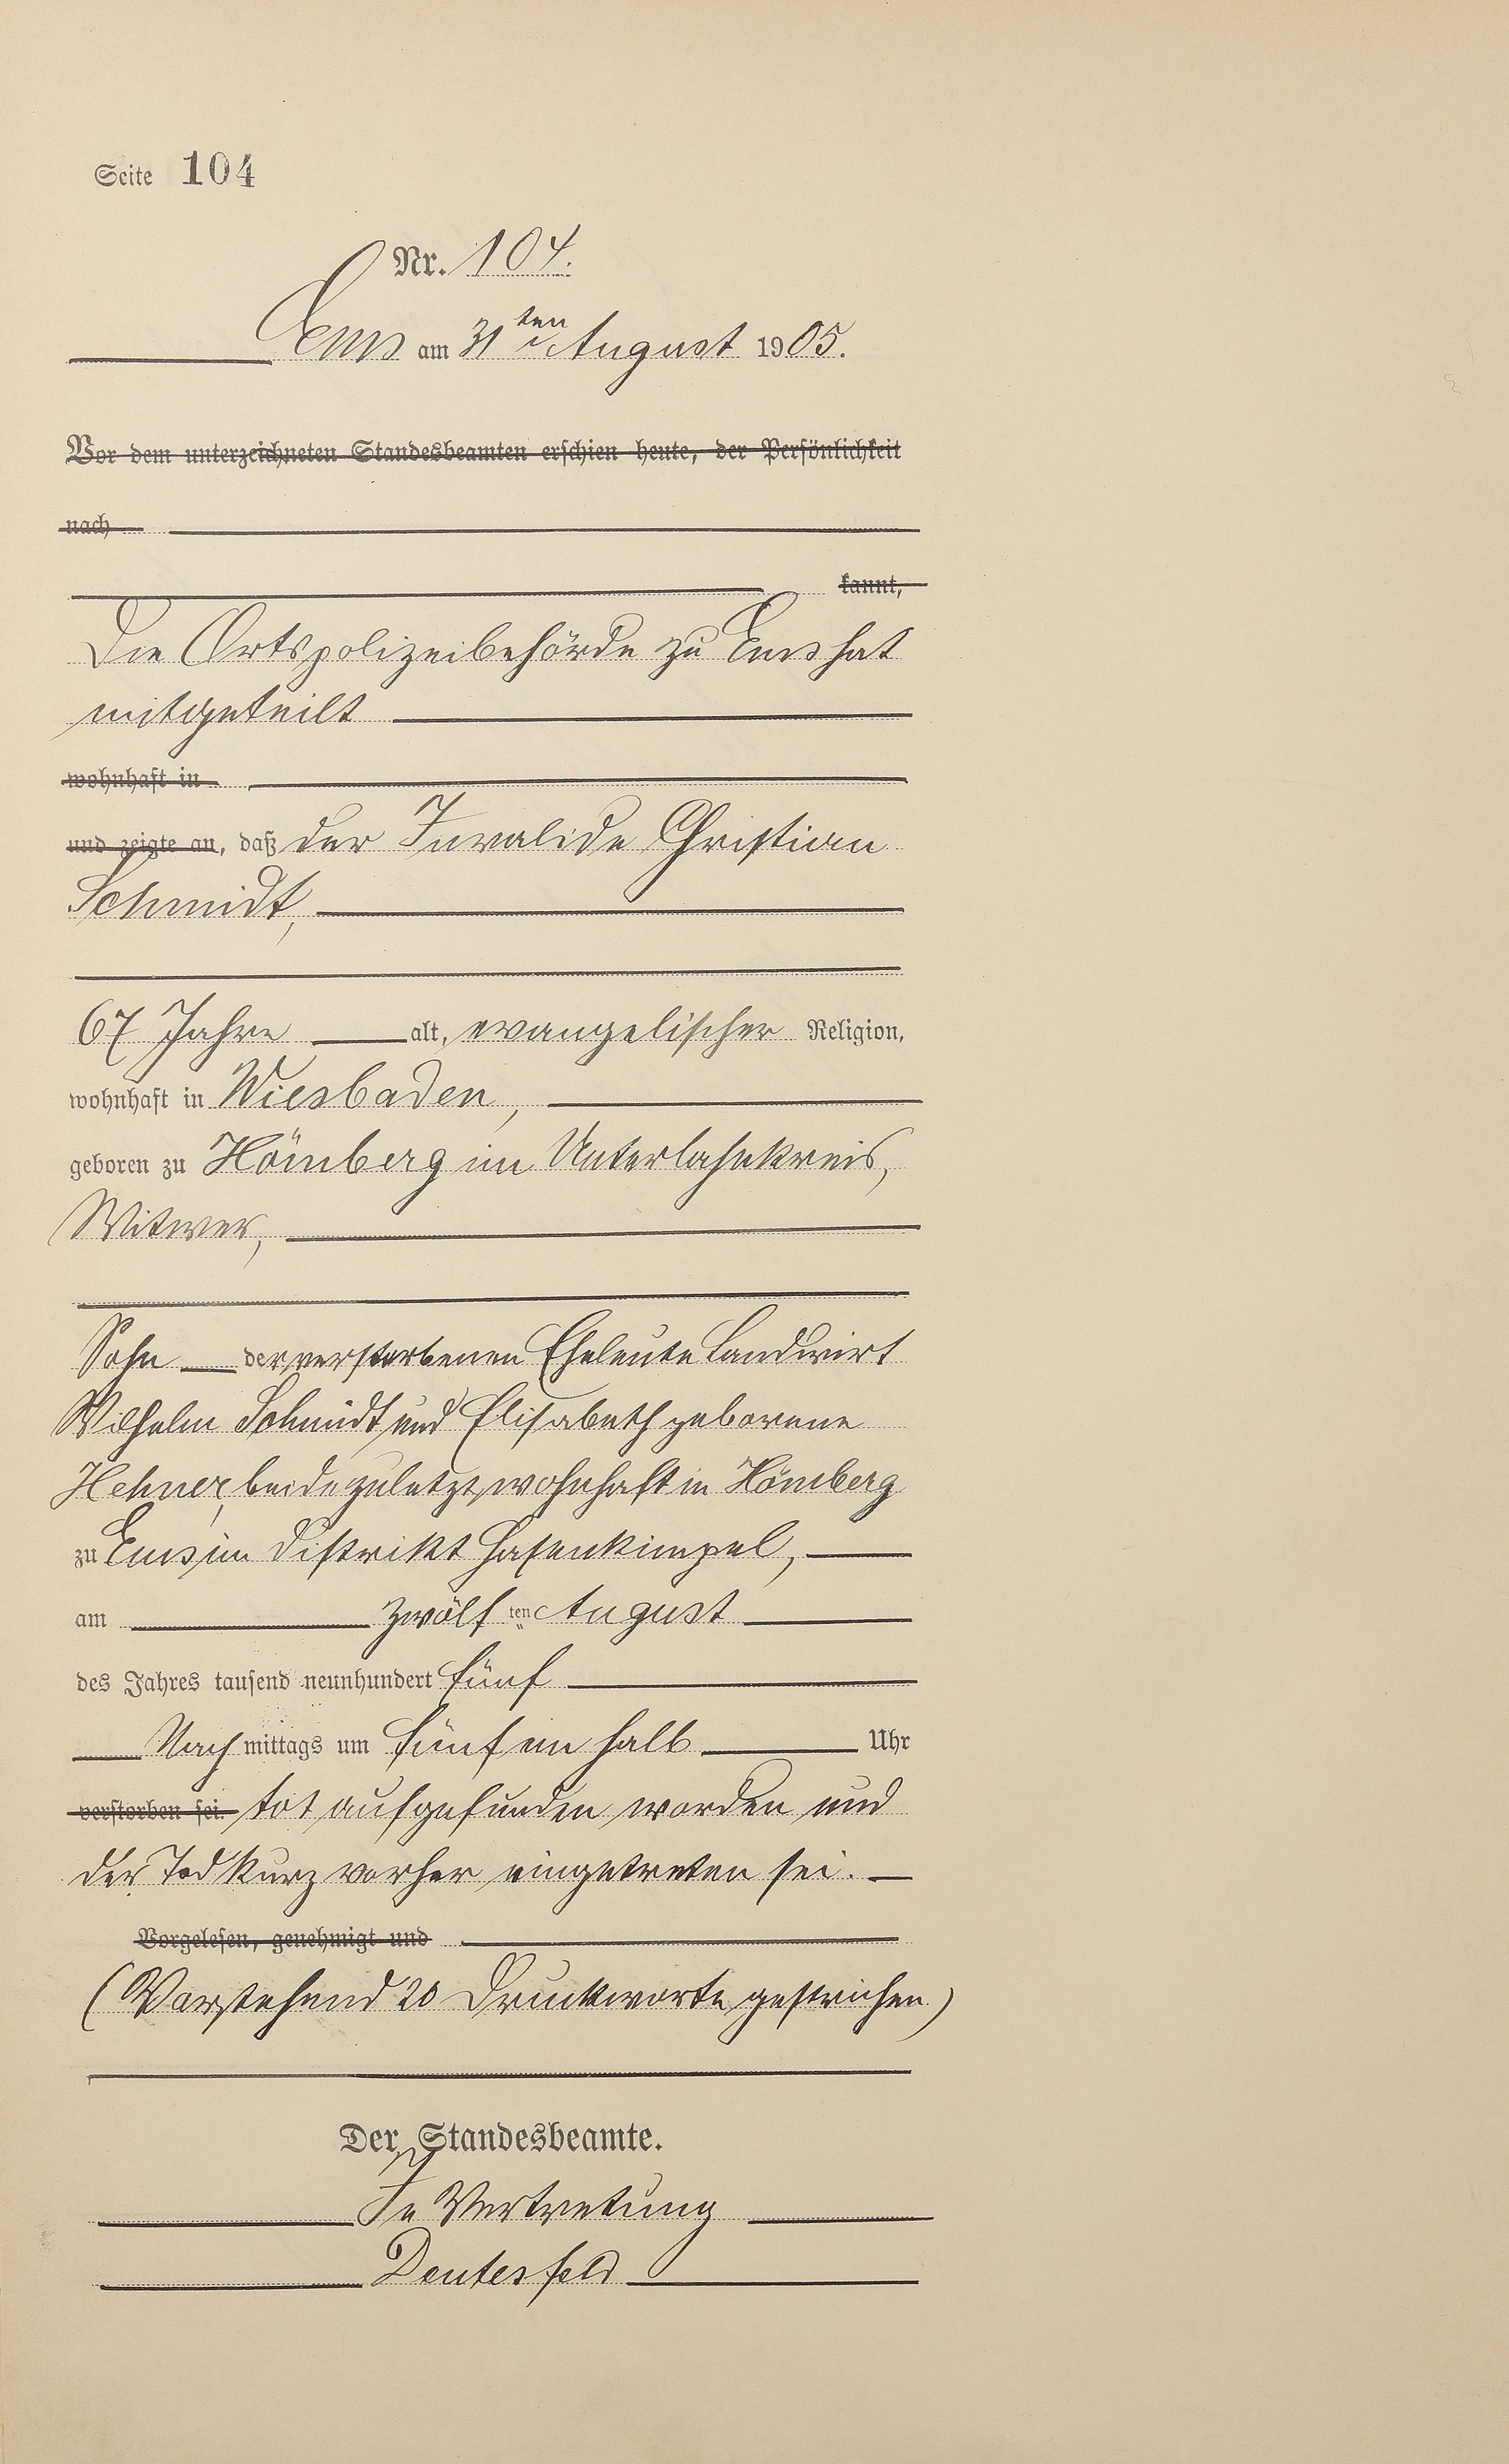 Seite 104
Nr. 104.
Ems am 31ten August 1905.
Vor dem unterzeichneten Standesbeamten erschien heute, der Persönlichkeit
nach
kannt,
Die Ortspolizeibehörde zu Ems hat
mitgeteilt
wohnhaft in
und zeigte an, daß der Invalide Christian
Schmidt,
67 Jahre alt, evangelischer Religion,
wohnhaft in Wiesbaden,
geboren zu Hömberg im Unterlahnkreis,
Witwer,
Sohn der verstorbenen Eheleute Landwirt
Wilhelm Schmidt und Elisabeth geborene
Hehner, beide zuletzt wohnhaft in Hömberg
zu Ems im Distrikt Hasenkimpel,
am zwölften August
des Jahres tausend neunhundert fünf
Nachmittags um fünf ein halb Uhr
verstorben sei tot aufgefunden worden und
der Tod kurz vorher eingetreten sei.
Vorgelesen, genehmigt und
(Vorstehend 20 Druckworte gestrichen)
Der Standesbeamte.
In Vertretung
Deutesfeld